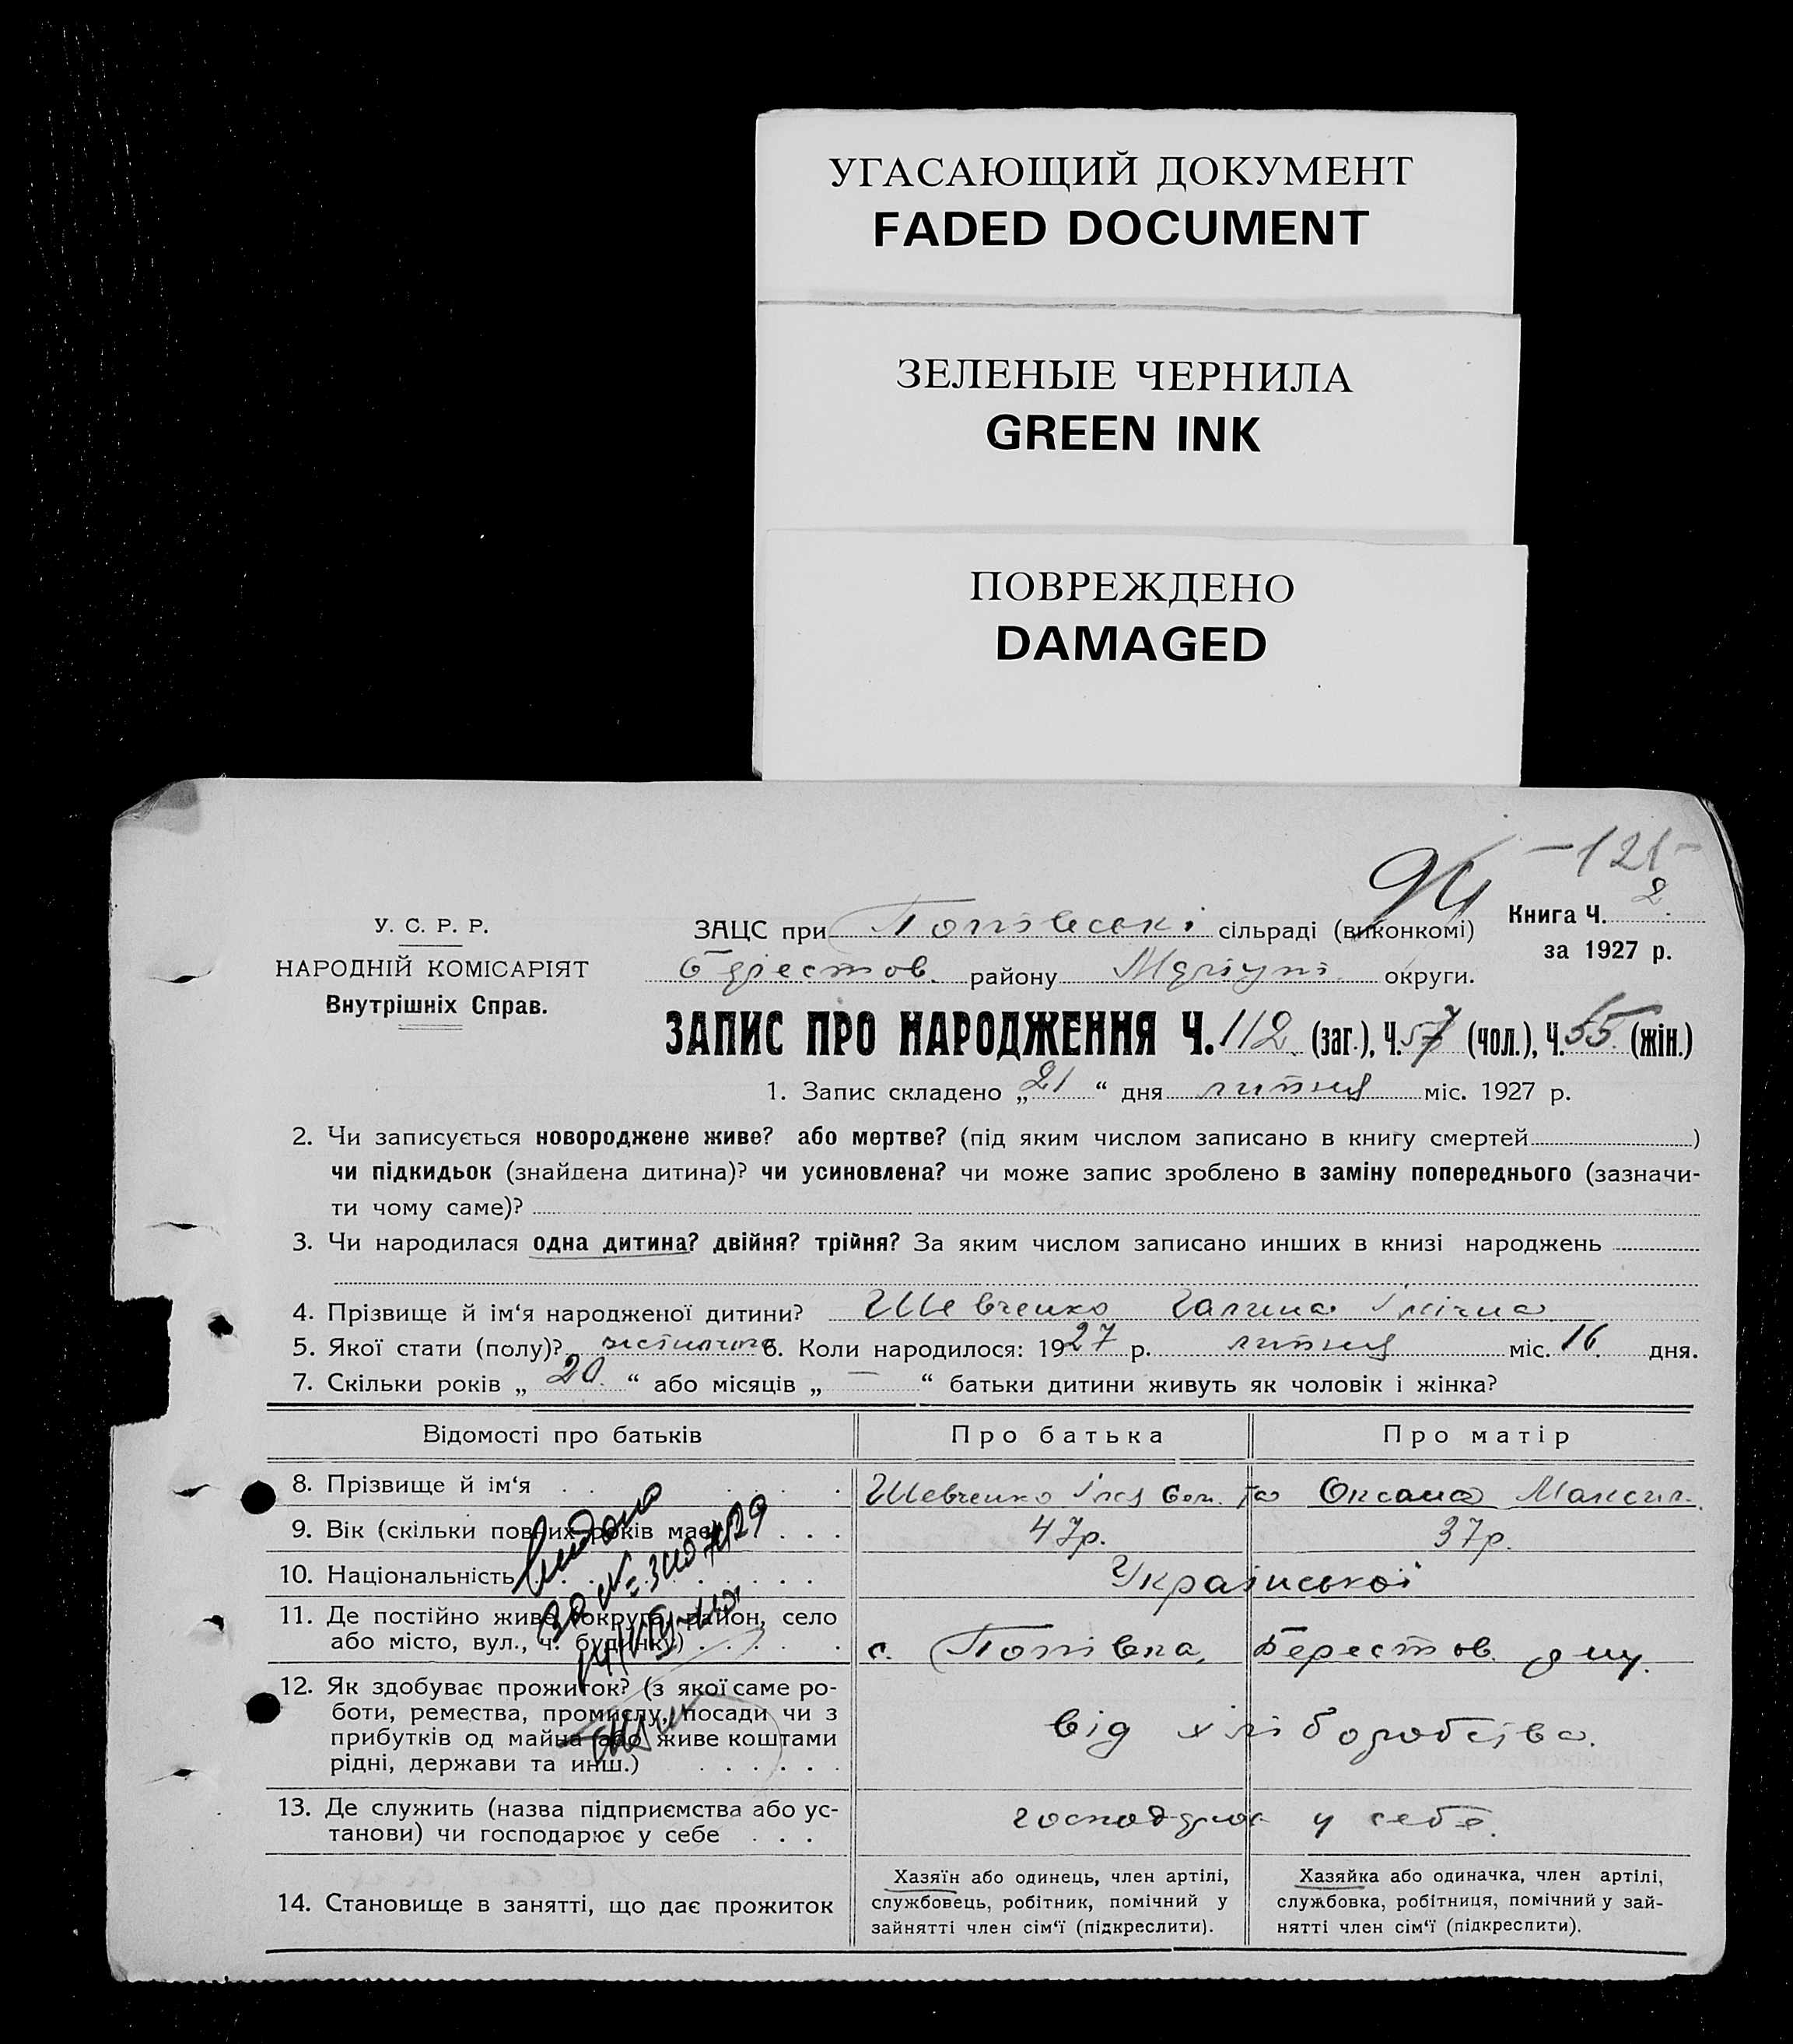 УГАСАЮЩИЙ ДОКУМЕНТ
FADED DOCUMENT
ЗЕЛЕНЫЕ ЧЕРНИЛА
GREEN INK
ПОВРЕЖДЕНО
DAMAGED
-121-
94
У. С. Р. Р.
НАРОДНІЙ КОМІСАРІЯТ
Внутрішніх Справ.
ЗАЦС при Попівські сільраді (виконкомі)
Книга Ч. 2
за 1927 р.
Берестов. району Маріупі. округи.
ЗАПИС ПРО НАРОДЖЕННЯ Ч. 112 (заг.), Ч. 57 (чол.), Ч. 55 (жін.)
1. Запис складено „21“ дня лютня міс. 1927 р.
2. Чи записується новороджене живе? або мертве? (під яким числом записано в книгу смертей )
чи підкидьок (знайдена дитина)? чи усиновлена? чи може запис зроблено в заміну попереднього (зазначи-
ти чому саме)?
3. Чи народилася одна дитина? двійня? трійня? За яким числом записано инших в книзі народжень
4. Прізвище й ім‘я народженої дитини? Шевченко Галина Ілічна
5. Якої стати (полу)? жіночого 6. Коли народилося: 1927 р. лютня міс. 16 дня.
7. Скільки років „20“ або місяців „—“ батьки дитини живуть як чоловік і жінка?
Відомості про батьків
Про батька
Про матір
8. Прізвище й ім‘я
Шевченко Ілля Сем. та Оксана Максим.
9. Вік (скільки повних років має)
47р.
37р.
10. Національність
Української
11. Де постійно живе (округа, район, село
або місто, вул., ч. будинку)
с. Попівка, Берестов. р му.
12. Як здобуває прожиток? (з якої саме ро-
боти, ремества, промислу, посади чи з
прибутків од майна або живе коштами
рідні, держави та инш.)
від хліборобства.
13. Де служить (назва підприємства або ус-
танови) чи господарює у себе
господарює у себе.
14. Становище в занятті, що дає прожиток
Хазяїн або одинець, член артілі,
службовець, робітник, помічний у
зайнятті член сім‘ї (підкреслити).
Хазяйка або одиначка, член артілі,
службовка, робітниця, помічний у зай-
нятті член сім‘ї (підкреслити).
Видано